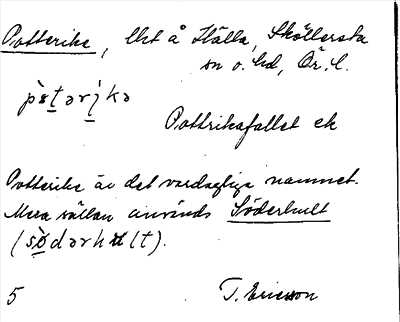 Potterike, lht å Hälla, Sköllersta
sn o. hd, Ör. l.
pòtərikə
Pottrikafallet ek
Potterike är det vardagliga namnet.
Mera sällan används Söderhult
(sø̀dərhult).
5 T. Ericsson